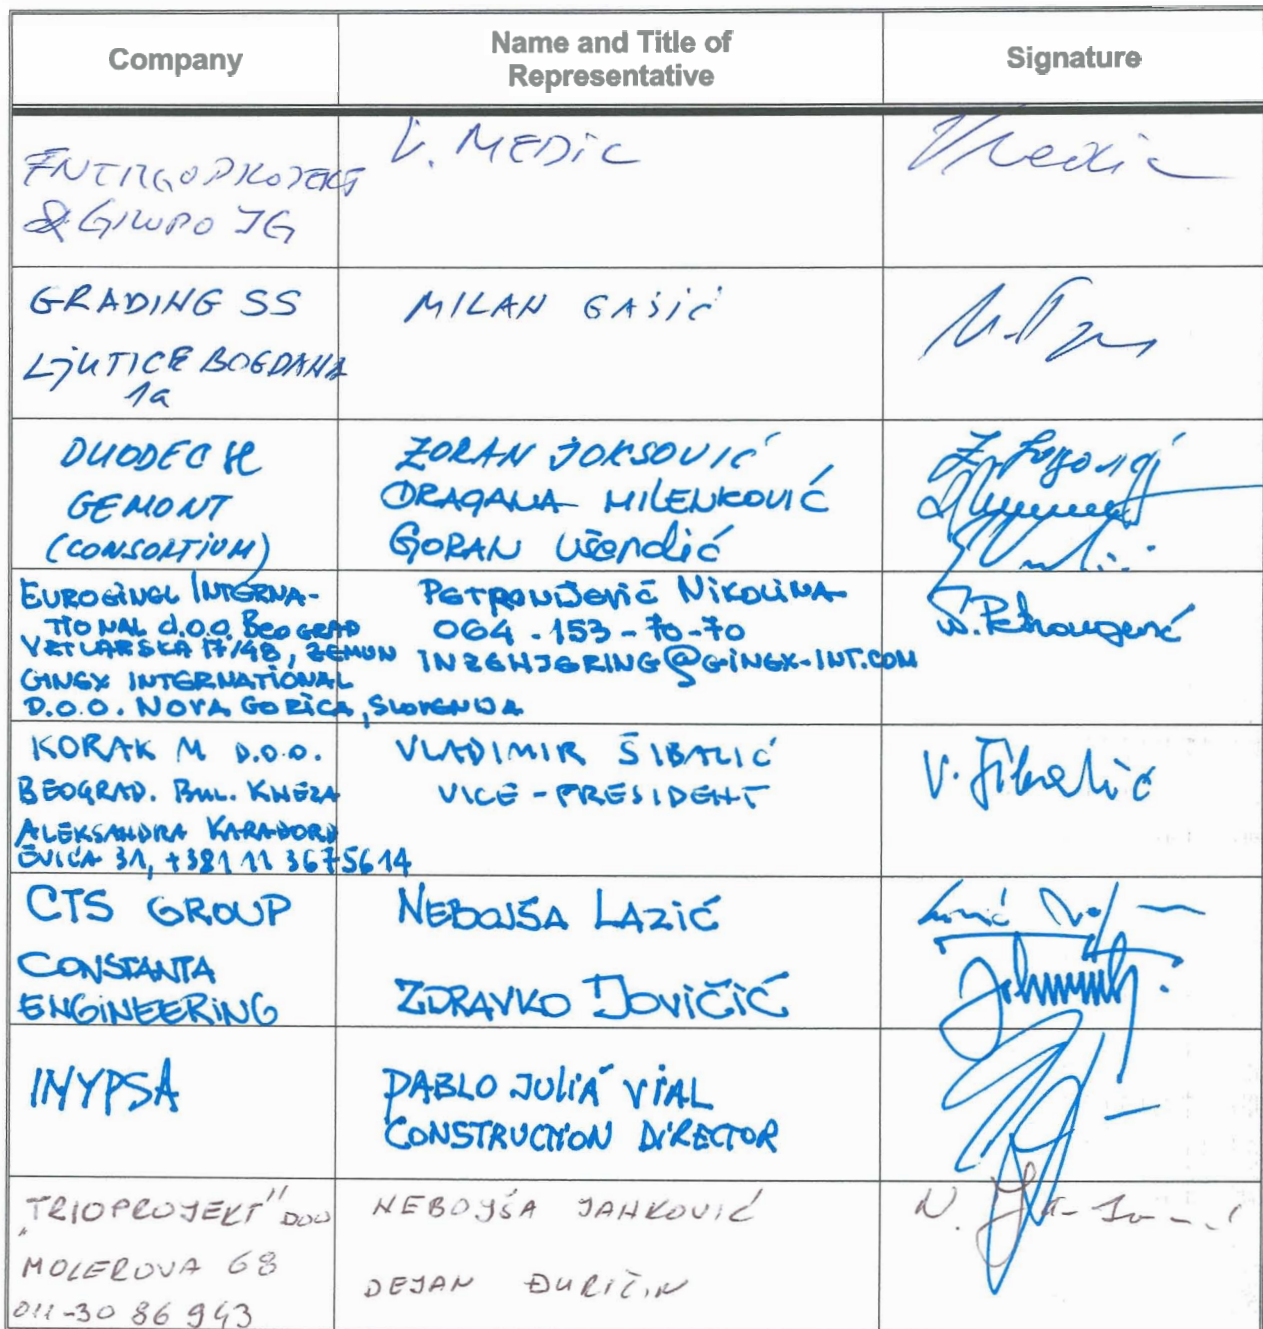 Company
Name and Title of
Representative
Signature
ENERGOPROJEKT
& GRUPO JG
V. MEDIC
GRADING SS
LJUTICE BOGDANA
1a
MILAN GAŠIĆ
DUODEC SC
GEMONT
(CONSORTIUM)
ZORAN JOKSOVIĆ
DRAGANA MILENKOVIĆ
GORAN UŠENDIĆ
EUROGINGL INTERNA-
TIONAL d.o.o. BEOGRAD
VRTLARSKA 17/48, ZEMUN
GINGX INTERNATIONAL
D.O.O. NOVA GORICA, SLOVENIJA
PETRONIJEVIĆ NIKOLINA
064-153-70-70
INZENJERING@GINGX-INT.COM
KORAK M D.O.O.
BEOGRAD. BUL. KNEZA
ALEKSANDRA KARAĐORĐ
EVIĆA 31, +381 11 3675614
VLADIMIR ŠIBALIĆ
VICE-PRESIDENT
V. Šibalić
CTS GROUP
CONSTANTA
ENGINEERING
NEBOJŠA LAZIĆ
ZDRAVKO JOVIČIĆ
INYPSA
PABLO JULIÁ VIAL
CONSTRUCTION DIRECTOR
"TRIOPROJEKT" DOO
MOLEROVA 68
011-30 86 943
NEBOJŠA JANKOVIĆ
DEJAN ĐURIČIN